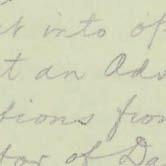 into of
t an Adv
tions from
tor of D